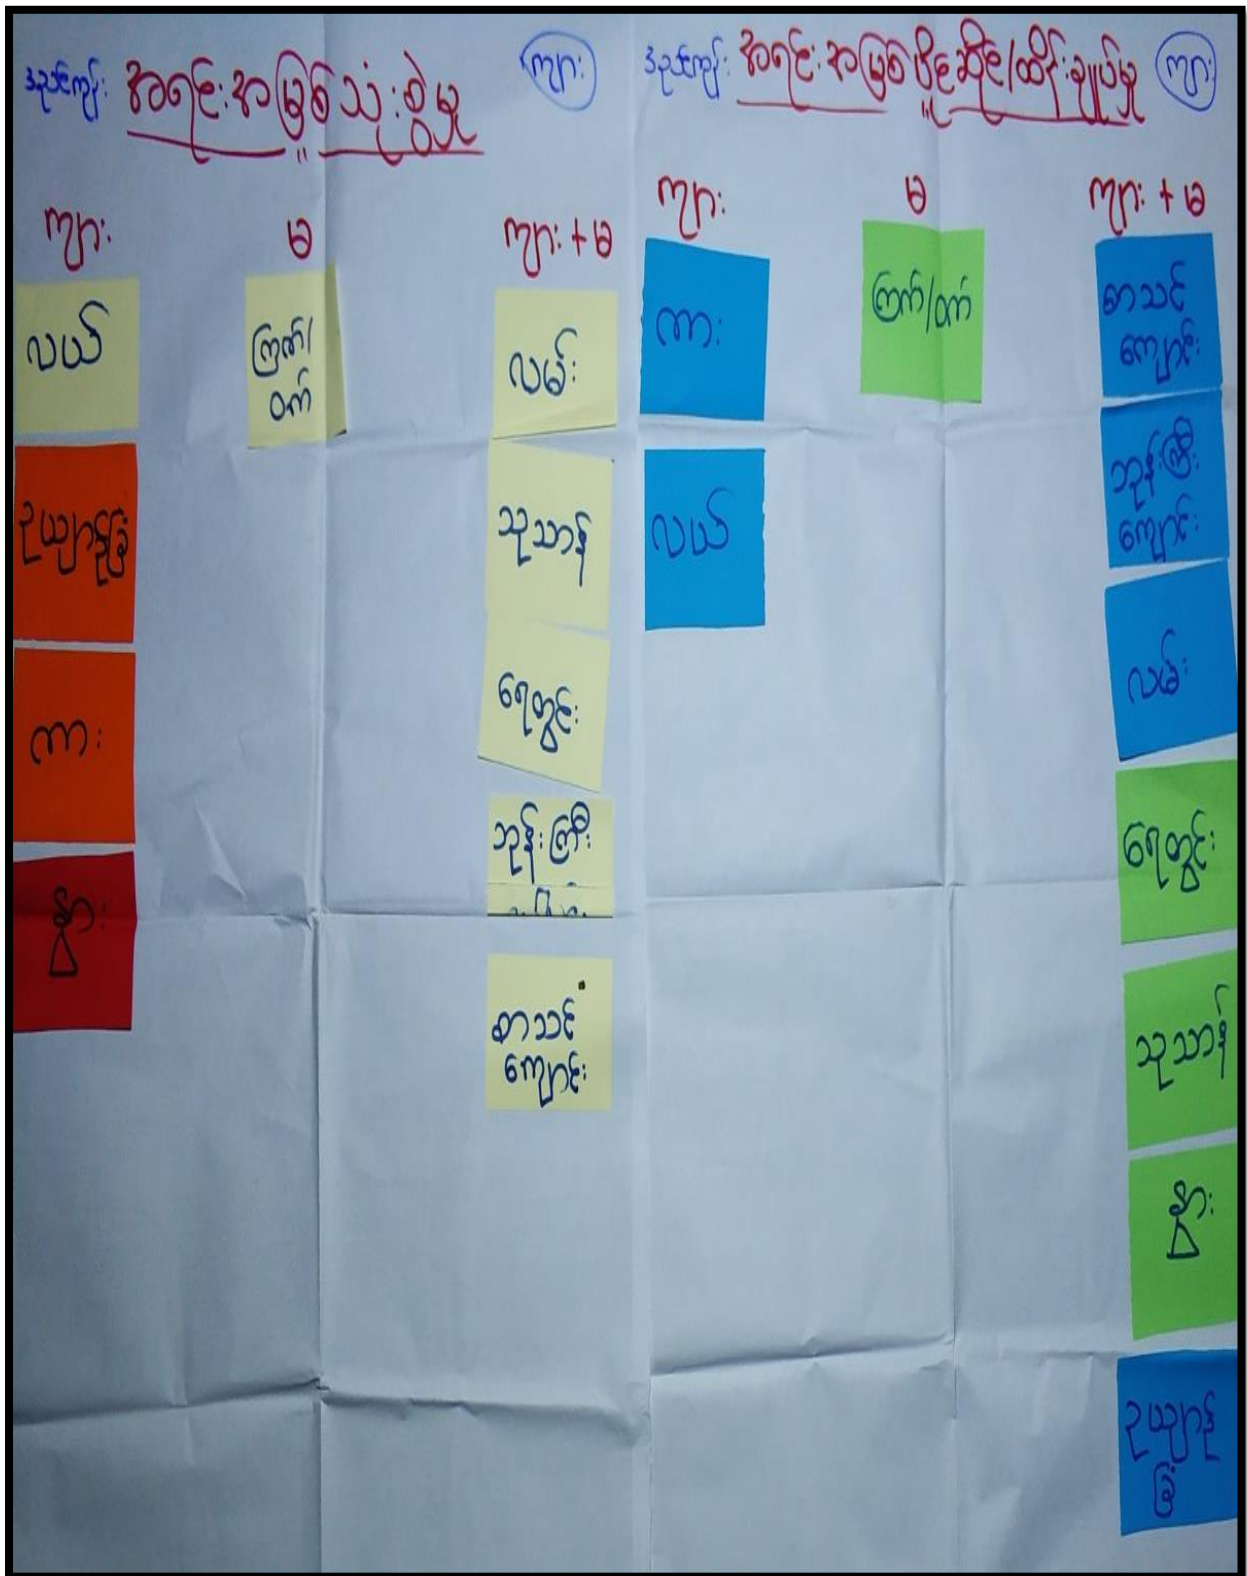 ဒညင်းကျုံး အရင်းအမြစ်သုံးစွဲမှု ကျား
ကျား မ ကျား + မ
လယ်
ဥယျာဉ်ခြံ
ကား
နွား
ကြက်/
ဝက်
လမ်း
သုသာန်
ရေတွင်း
ဘုန်းကြီး
စာသင်
ကျောင်း
အရင်းအမြစ်ပိုင်ဆိုင်/ထိန်းချုပ်မှု ကျား
ကျား မ ကျား + မ
ကား
လယ်
ကြက်/ဝက်
စာသင်
ကျောင်း
ဘုန်းကြီး
ကျောင်း
လမ်း
ရေတွင်း
သုသာန်
နွား
ဥယျာဉ်
ခြံ